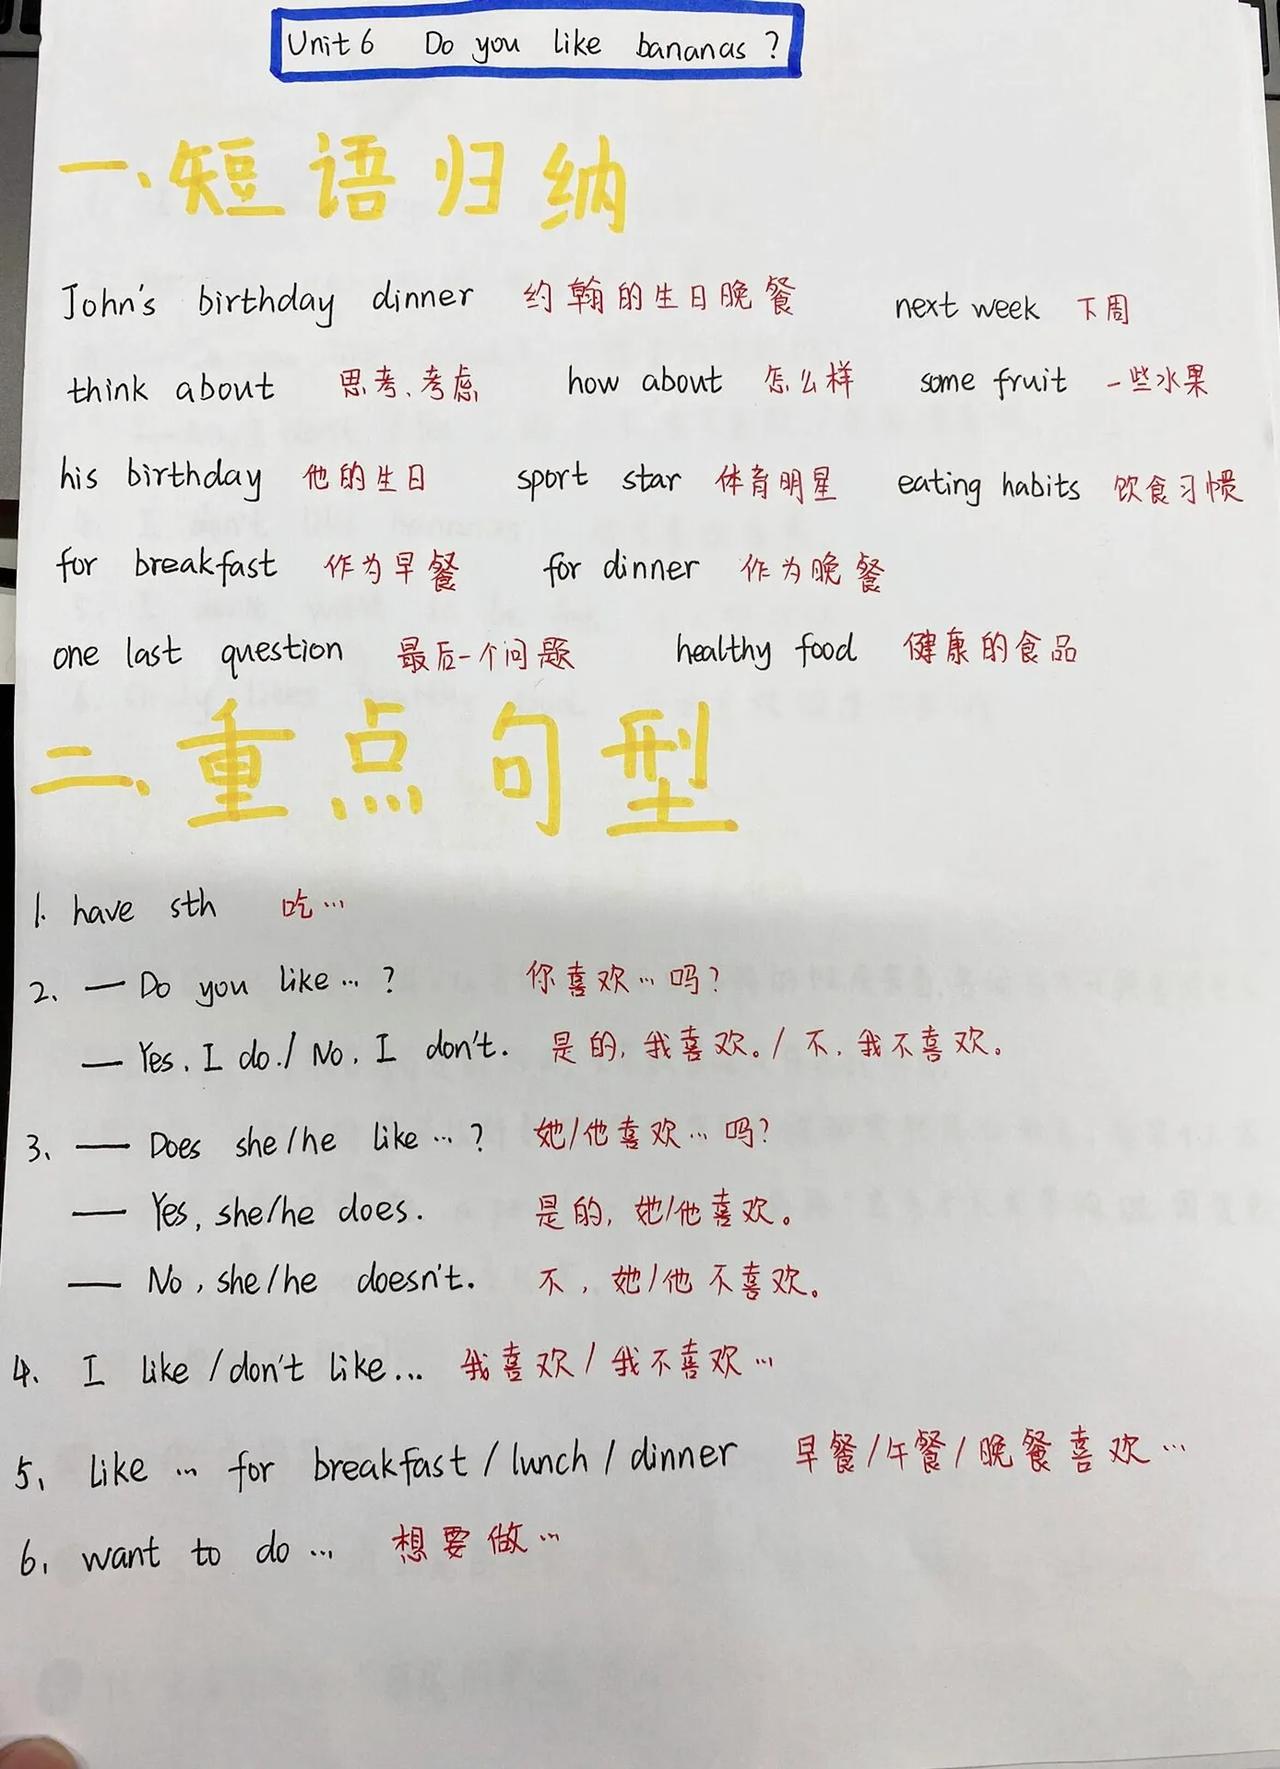 Unit 6 Do you like bananas ?
一、短语归纳
John's birthday dinner 约翰的生日晚餐 next week 下周
think about 思考、考虑 how about 怎么样 some fruit 一些水果
his birthday 他的生日 sport star 体育明星 eating habits 饮食习惯
for breakfast 作为早餐 for dinner 作为晚餐
one last question 最后一个问题 healthy food 健康的食品
二、重点句型
1. have sth 吃…
2、— Do you like … ? 你喜欢…吗?
— Yes, I do. / No, I don't. 是的, 我喜欢。/ 不, 我不喜欢。
3、— Does she/he like … ? 她/他喜欢…吗?
— Yes, she/he does. 是的, 她/他喜欢。
— No, she/he doesn't. 不, 她/他不喜欢。
4、I like / don't like… 我喜欢 / 我不喜欢…
5、like … for breakfast / lunch / dinner 早餐/午餐/晚餐喜欢…
6、want to do … 想要做…